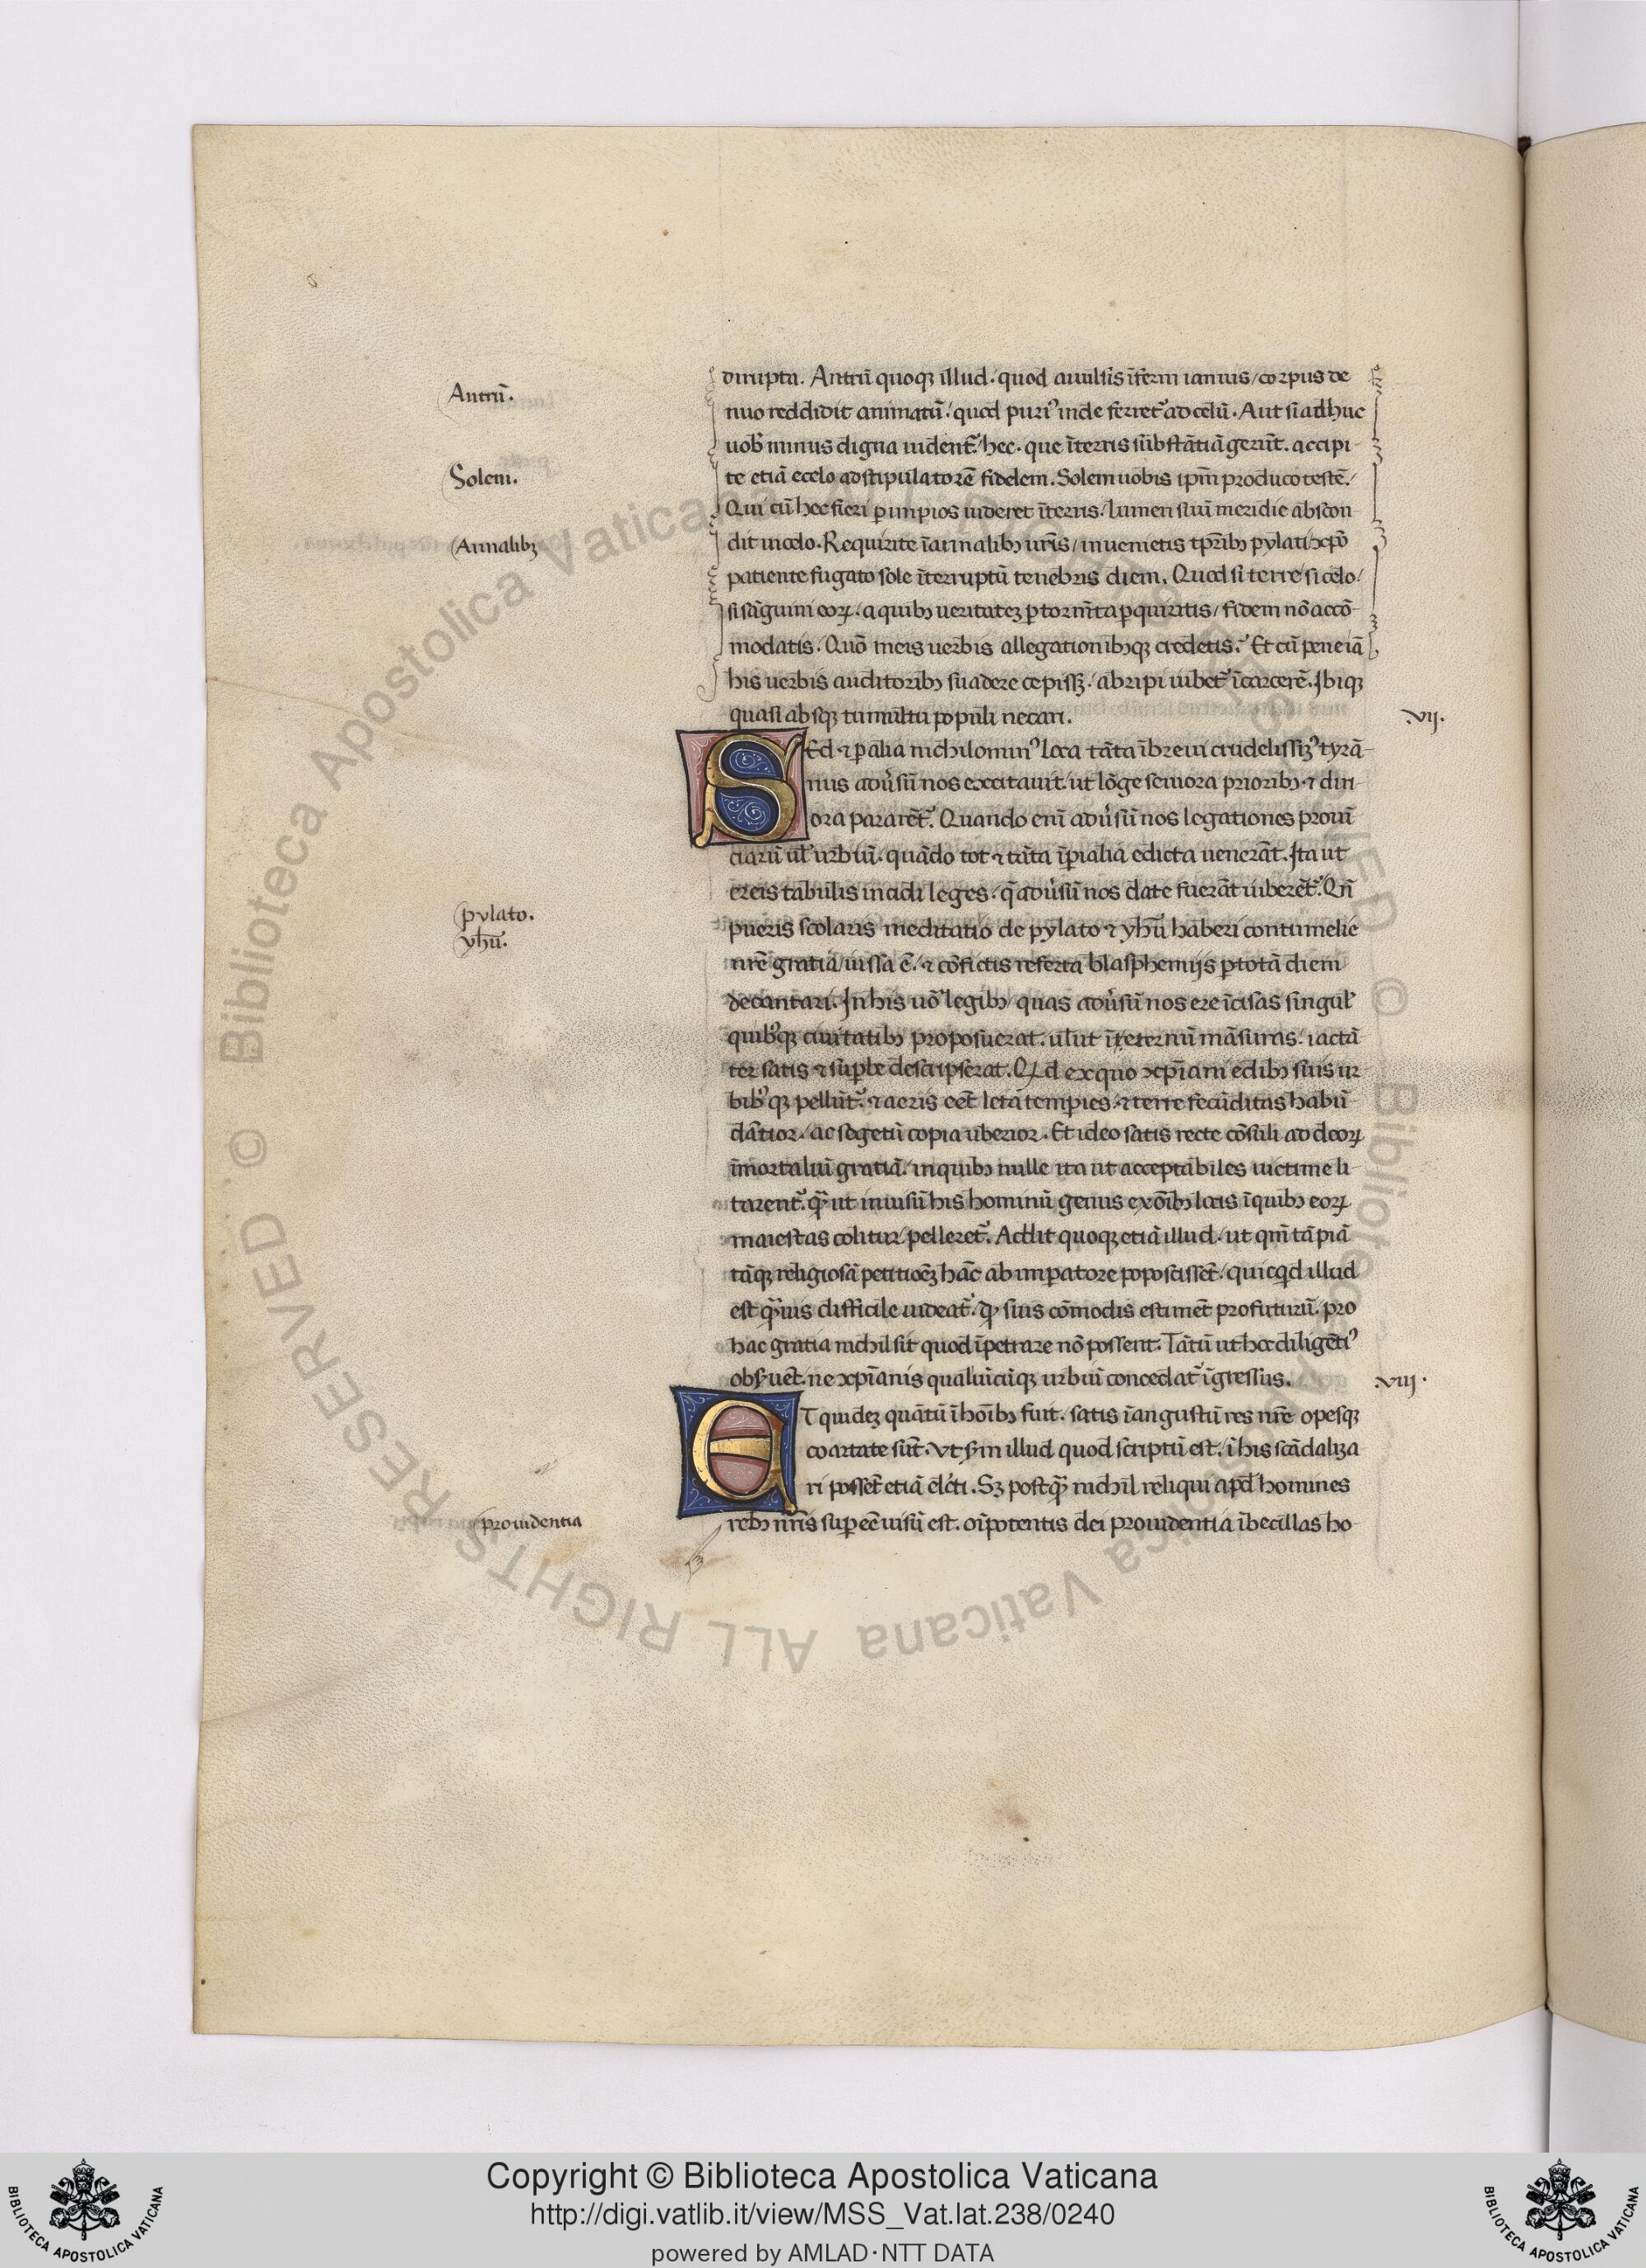 Antrū.
Solem.
Annalibꝫ
pylato.
yhū.
prouidentia
dirupta. Antrū quoqꝫ illud. quod auulsis īferni ianuis / corpus de
nuo reddidit animatū. quod puriꝰ inde ferret᷑ ad celū. Aut si adhuc
uob minus digna uident᷑ hec. que īterris sūbstātiā gerūt. accipi-
te etiā ecelo adstipulatorē fidelem. Solem uobis ipm̄ produco testē.
Qui cū hec fieri ꝑ impios uideret īterris. lumen suū meridie abscon
dit in celo. Requirite ī annalibꝫ ur̄is / inuenietis tp̄ribꝫ pylati xp̄o
patiente fugato sole īterruptū tenebris diem. Quod si terre / si celo /
si sāguini eoꝝ. a quibꝫ ueritatez ꝑ torm̄ta ꝑquiritis / fidem nō accō-
modatis. Quō meis uerbis allegationibꝫqꝫ credetis. Et cū pene iā
his uerbis auditoribꝫ suadere cepissꝫ. abripi iubet᷑ ī carcerē. Ibiqꝫ
quasi absqꝫ tumultu populi necari.
.vij.
SEd ⁊ ꝑ alia nichilominꝰ loca tāta ībreui crudelissimꝰ tyrā-
nus adūsū nos excitauit. ut lōge seuiora prioribꝫ ⁊ diri-
ora pararēt᷑. Quando eni adūsū nos legationes proui
ciarū ul urbiū. quādo tot ⁊ tāta īꝑialia edicta uenerāt. Ita ut
ereis tabulis incidi leges. q̄ adūsū nos date fuerāt iuberēt᷑. Qn̄
pueris scolaris meditatio de pylato ⁊ yhū haberi contumelie
nr̄e gratia iussa ē. ⁊ cōfictis referta blasphemijs ꝑ totā diem
decantari. In his uō legibꝫ quas adūsū nos ere īcisas singul
quibꝰqꝫ ciuitatibꝫ proposuerat. ulut īeternū māsuras. iactā
ter satis ⁊ suꝑbe descripserat. Qd ex quo xp̄iani edibꝫ suis ur
bibꝰqꝫ pellūt᷑. ⁊ aeris eēt leta temꝑies. ⁊ terre fecūditas habū
dātior. ac segetū copia uberior. Et ideo satis recte cōsuli ad deoꝝ
īmortaliū gratiā. in quibꝫ nulle ita ut acceptabiles uictime li
tarent᷑. q̄ ut inuisū his hominū genus ex ōībꝫ locis ī quibꝫ eoꝝ
maiestas colitur pelleret᷑. Addit quoqꝫ etiā illud. ut qm̄ tā piā
tāqꝫ religiosā petitionēz hāc ab imꝑatore poposcissēt. quicq̄d illud
est q̄uis difficile uideat᷑. qꝫ suis cōmodis estimēt profuturū. pro
hac gratia nichil sit quod īpetrare nō possent. Tātū ut hoc diligētiꝰ
obsuēt. ne xp̄ianis qualiuicūqꝫ urbiū concedat᷑ īgressus.
.viij.
ET quidez quātū ī hoībꝫ fuit. satis ī angustū res nr̄e opesqꝫ
coartate sūt. vt sm illud quod scriptū est. ī his scādaliza
ri possēt etiā elēcti. Sꝫ postq̄ nichil reliqui apd homines
rebꝫ nr̄is suꝑ eē uisū est. oīpotentis dei prouidentia ībecillas ho-
Copyright © Biblioteca Apostolica Vaticana
http://digi.vatlib.it/view/MSS_Vat.lat.238/0240
powered by AMLAD·NTT DATA
BIBLIOTECA APOSTOLICA VATICANA
BIBLIOTECA APOSTOLICA VATICANA
© Biblioteca Apostolica Vaticana ALL RIGHTS RESERVED